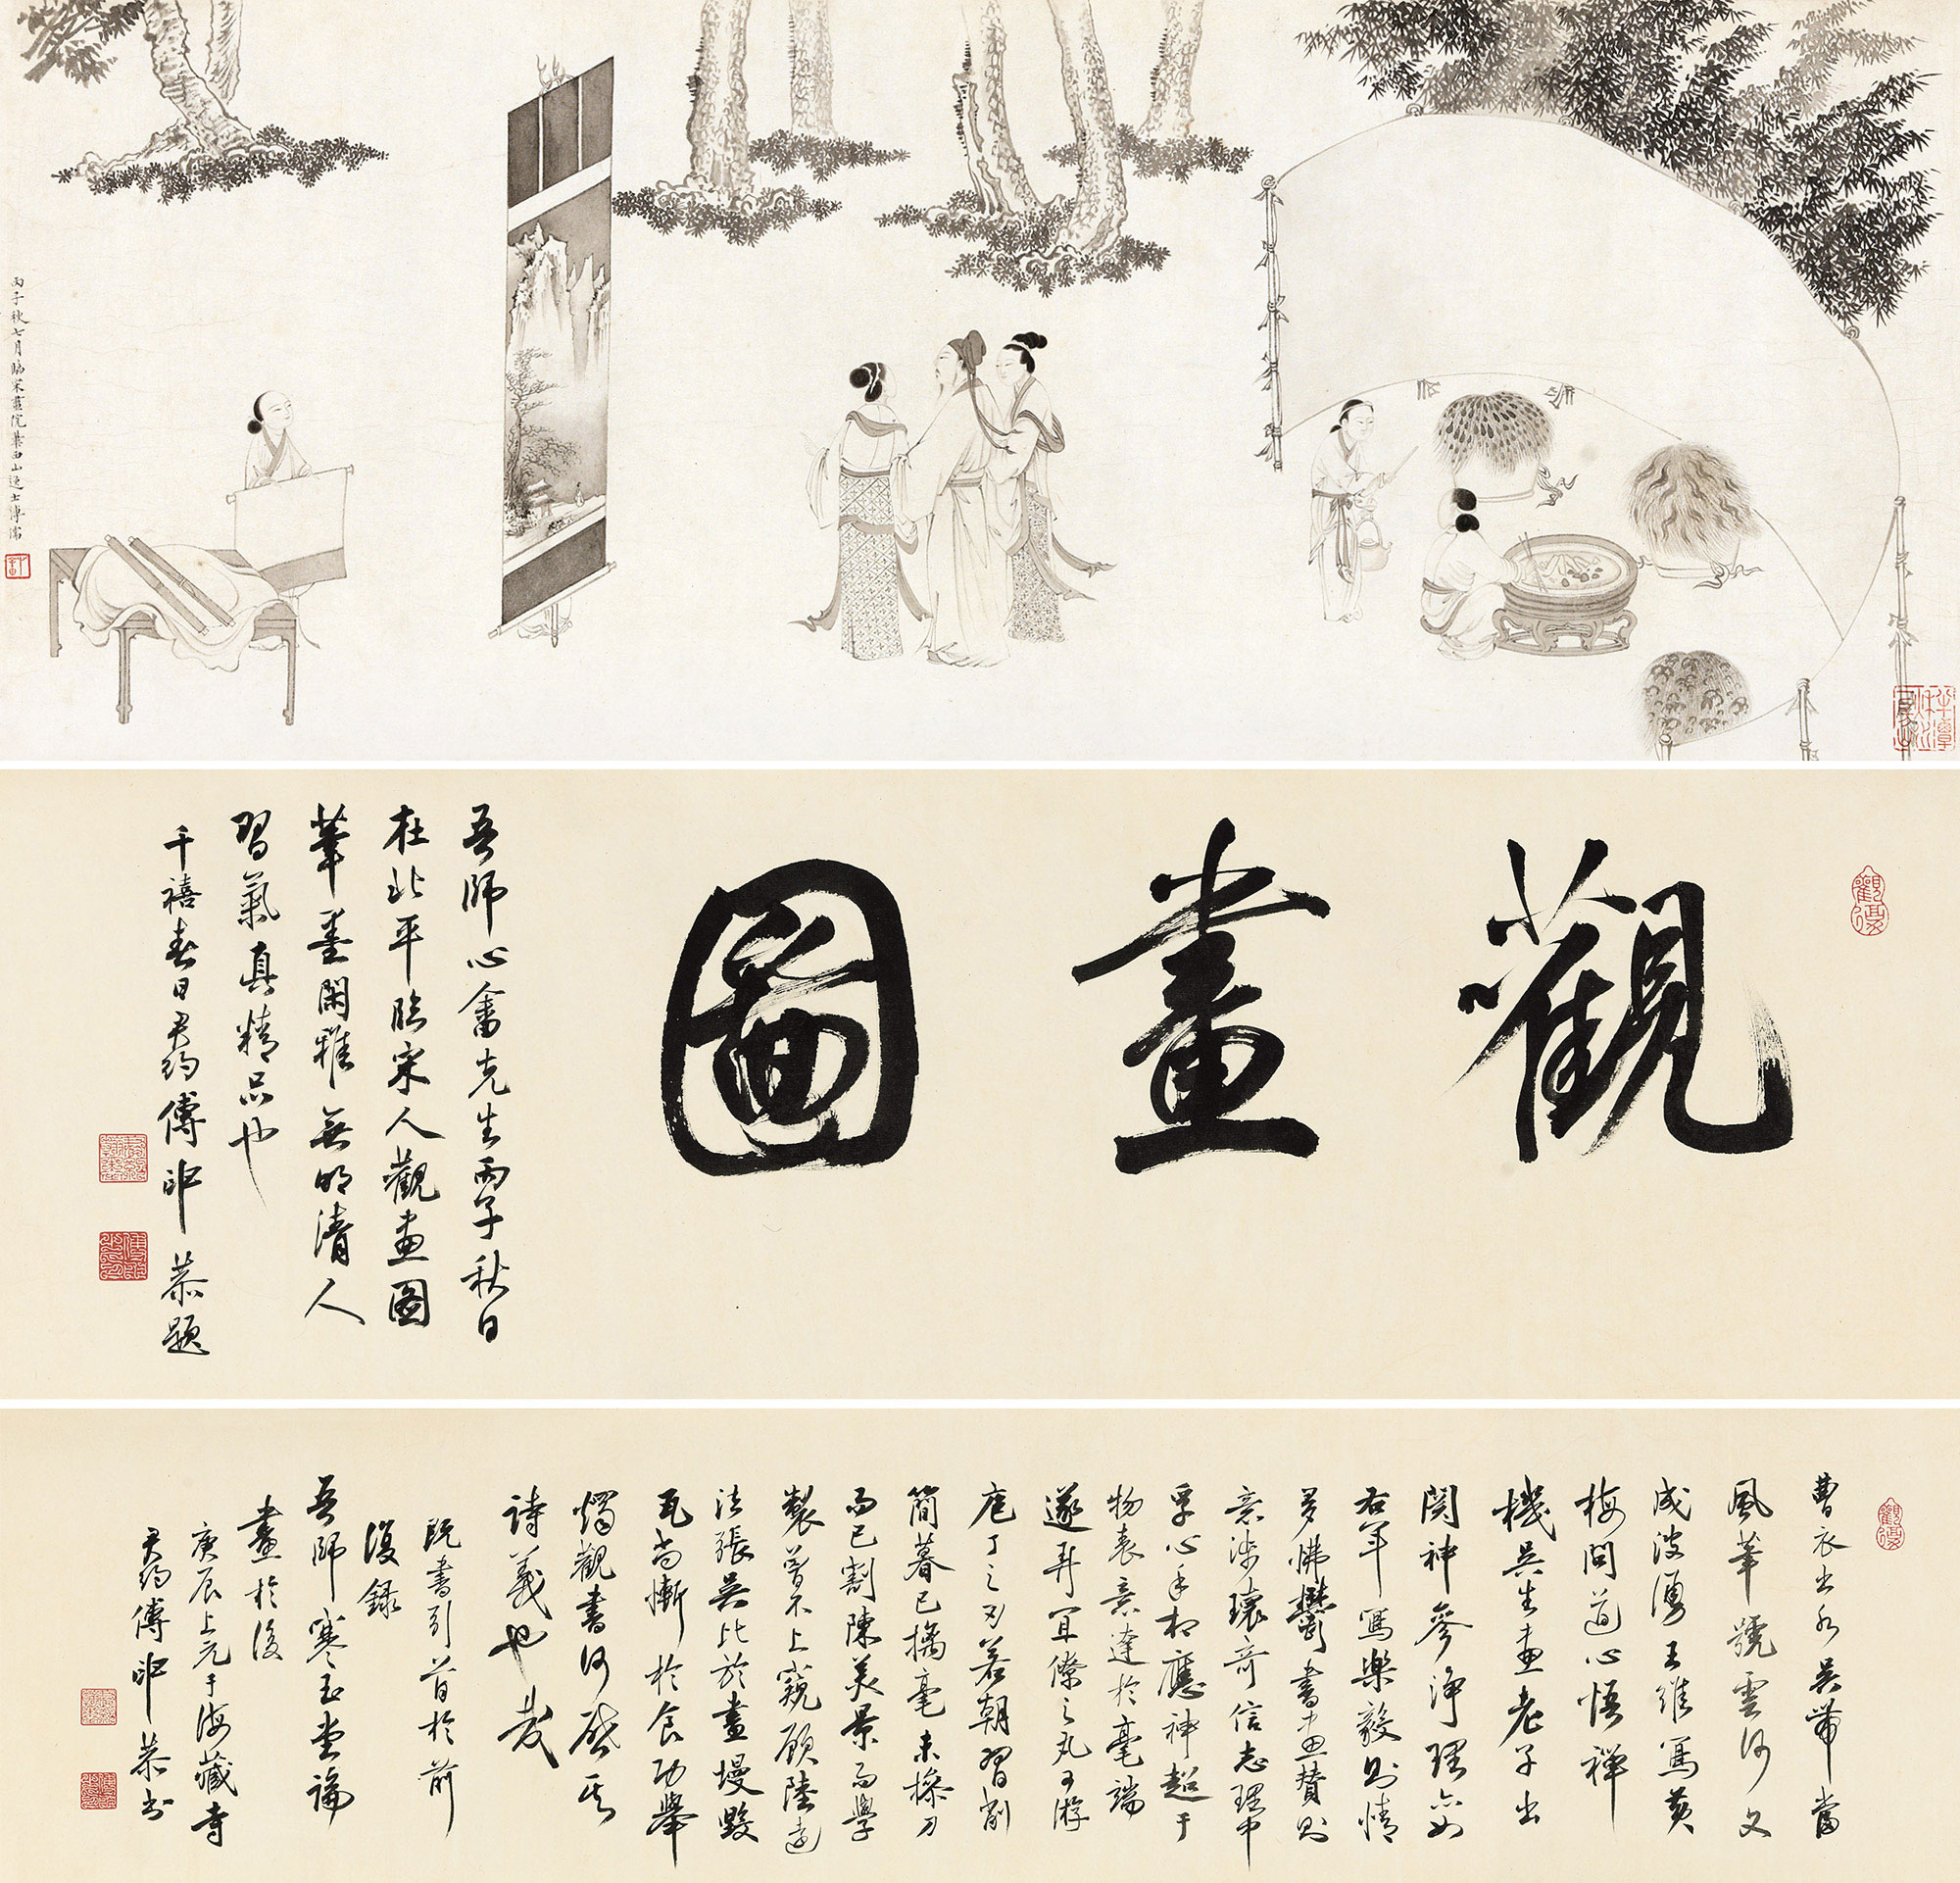 丙子秋七月臨宋畫院葉西山逸士溥儒
觀畫圖
吾師心畬先生丙子秋日
在北平臨宋人觀畫圖
筆墨閑雅無明清人
習氣真精品也
千禧春日君約傅申恭題
曹衣出水吳帶當
風筆號雲河文
成波湧王維寫黃
梅問道心悟禪
機吳生畫老子出
關神參淨理亦如
右軍寫樂毅則情
多怫鬱書畫贊則
意涉瓌奇信志理中
孚心手相應神超于
物表意達於毫端
遂弄宜僚之丸可游
庖丁之刃若朝習削
簡暮已摛毫未操刀
而已割陳美景而學
製曾不上窺顧陸遠
法張吳比於畫墁毀
瓦尚慚於食功舉
燭觀書何啟其
詩義也哉
既書引首於前
復錄
吾師寒玉堂論
畫於後
庚辰上元于海藏寺
君約傅申恭書